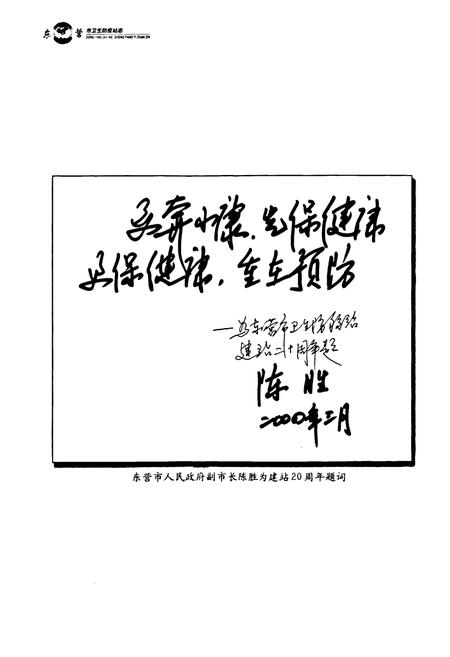 东营 市卫生防疫站志
DONG YING SHI WEI SHENG FANG YI ZHAN ZHI
要奔小康，先保健康
要保健康，重在预防
—为东营市卫生防疫站
建站二十周年题
陈胜
二000年三月
东营市人民政府副市长陈胜为建站20周年题词